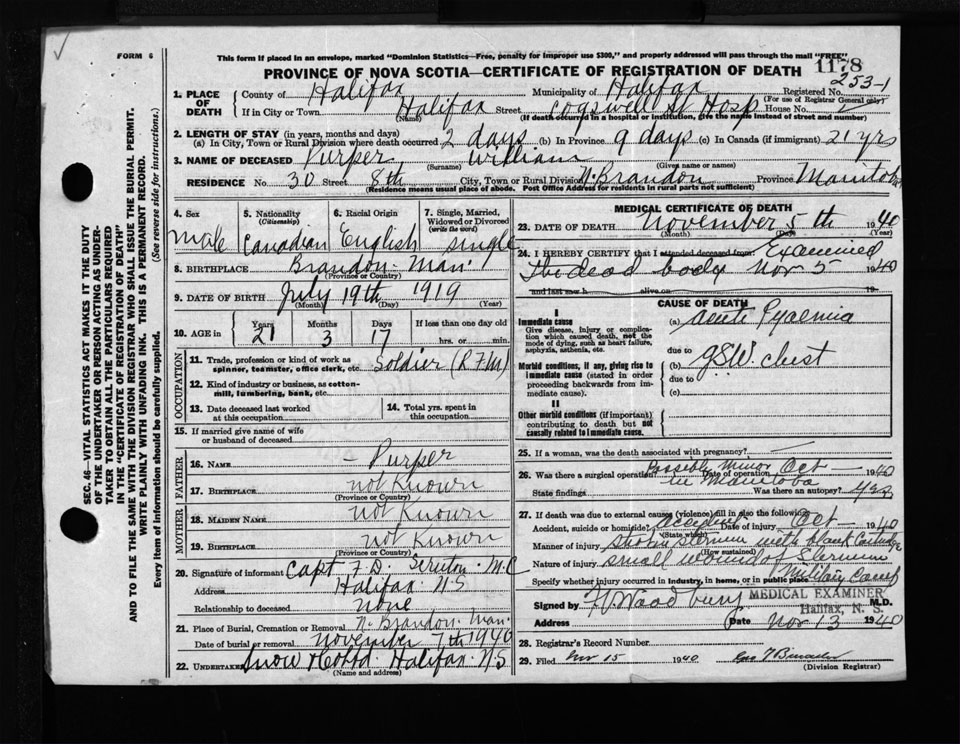 FORM 6
This form if placed in an envelope, marked "Dominion Statistics—Free, penalty for improper use $300," and properly addressed will pass through the mail "FREE"
PROVINCE OF NOVA SCOTIA—CERTIFICATE OF REGISTRATION OF DEATH
1178
253-1
SEC. 46—VITAL STATISTICS ACT MAKES IT THE DUTY
OF THE UNDERTAKER OR PERSON ACTING AS UNDER-
TAKER TO OBTAIN ALL THE PARTICULARS REQUIRED
IN THE "CERTIFICATE OF REGISTRATION OF DEATH"
AND TO FILE THE SAME WITH THE DIVISION REGISTRAR WHO SHALL ISSUE THE BURIAL PERMIT.
WRITE PLAINLY WITH UNFADING INK. THIS IS A PERMANENT RECORD.
Every item of information should be carefully supplied. (See reverse side for instructions.)
1. PLACE OF DEATH County of Halifax Municipality of Halifax Registered No.
(For use of Registrar General only)
If in City or Town Halifax Street Cogswell St Hosp House No.
(Name) (If death occurred in a hospital or institution, give the name instead of street and number)
2. LENGTH OF STAY (in years, months and days)
(a) In City, Town or Rural Division where death occurred 2 days (b) In Province 9 days (c) In Canada (if immigrant) 21 yrs
3. NAME OF DECEASED Purper William
(Surname) (Given name or names)
RESIDENCE No. 30 Street 8th City, Town or Rural Division N. Brandon Province Manitoba
(Residence means usual place of abode. Post Office Address for residents in rural parts not sufficient)
4. Sex
male
5. Nationality (Citizenship)
Canadian
6. Racial Origin
English
7. Single, Married, Widowed or Divorced (write the word)
single
8. BIRTHPLACE Brandon Man
(Province or Country)
9. DATE OF BIRTH July 19th 1919
(Month) (Day) (Year)
10. AGE in Years Months Days If less than one day old
21 3 17 hrs. or min.
OCCUPATION
11. Trade, profession or kind of work as spinner, teamster, office clerk, etc. Soldier (R F M)
12. Kind of industry or business, as cotton-mill, lumbering, bank, etc.
13. Date deceased last worked at this occupation
14. Total yrs. spent in this occupation
15. If married give name of wife or husband of deceased
FATHER
16. NAME Purper
17. BIRTHPLACE not Known
(Province or Country)
MOTHER
18. MAIDEN NAME not Known
19. BIRTHPLACE not Known
(Province or Country)
20. Signature of informant Capt F. D. M.C
Address Halifax N.S
Relationship to deceased none
21. Place of Burial, Cremation or Removal N. Brandon Man
Date of burial or removal November 7th 1940
22. UNDERTAKER Snow & Co Ltd Halifax N S
(Name and address)
MEDICAL CERTIFICATE OF DEATH
23. DATE OF DEATH November 5th 1940
(Month) (Day) (Year)
24. I HEREBY CERTIFY that I attended deceased from Examined
the dead body Nov 5 1940
and last saw h alive on 19
CAUSE OF DEATH
I
Immediate cause
Give disease, injury or complication which caused death, not the mode of dying, such as heart failure, asphyxia, asthenia, etc.
(a) Acute Pyaemia
due to
Morbid conditions, if any, giving rise to immediate cause (stated in order proceeding backwards from immediate cause).
(b) G.S.W. chest
due to
(c)
II
Other morbid conditions (if important) contributing to death but not causally related to immediate cause.
25. If a woman, was the death associated with pregnancy?
26. Was there a surgical operation? Possibly Minor Date of operation Oct 1940
in Manitoba
State findings Was there an autopsy? yes
27. If death was due to external causes (violence) fill in also the following:
Accident, suicide or homicide? accident Date of injury Oct 1940
(State which)
Manner of injury shot in sternum with blank Cartridge
(How sustained)
Nature of injury small wound of Sternum
Specify whether injury occurred in industry, in home, or in public place Military Camp
Signed by H. Woodbury M.D.
MEDICAL EXAMINER
Halifax, N. S.
Address Date Nov 13 1940
28. Registrar's Record Number
29. Filed Nov 15 1940
(Division Registrar)